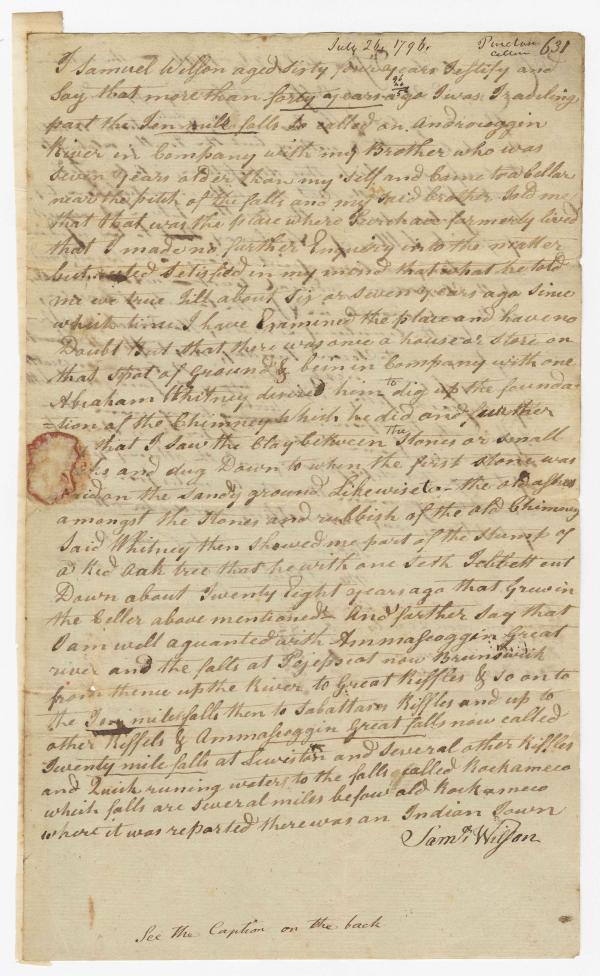 July 26, 1796. Purchas Cellar 631
I Samuel Wilson aged Sixty four years Testify and
Say that more than forty years ago I was Traveling
past the Ten mile falls So called on Androscoggin
River in Company with my Brother who was
Seven years older than my Self and Come to a Cellar
near the pitch of the falls and my said brother Told me
that that was the place where Purchase formerly lived
that I made no further Enquiry into the matter
but rested Satisfied in my mind that what he told
me was true Till about Six or Seven years ago Since
which time I have Examined the place and have no
Doubt But that there was once a house or Store on
that Spot of Ground & being in Company with one
Abraham Whitney desired him to dig up the founda
=tion of the Chimney which he did and further
that I Saw the Clay between the Stones or small
and dug Down to when the first Stone was
laid on the Sandy ground Likewise the old ashes
amongst the Stones and rubbish of the old Chimney
Said Whitney then Showed me part of the Stump of
a Red oak tree that he with one Seth Tebbett cut
Down about Twenty Eight years ago that Grew in
the Celler above mentioned And farther Say that
I am well aquanted with Ammascoggin Great
river and the falls at Pojepscot now Brunswick
from thence up the River to Great Riffles & So on to
the Ten mile falls then to Sabattases Riffles and up to
other Riffels & Ammascoggin Great falls now called
Twenty mile falls at Lewiston and Several other Riffles
and Quick runing waters to the falls called Rockameco
which falls are Several miles below old Rockameco
where it was reported there was an Indian Town
Samll Wilson
See the Caption on the back